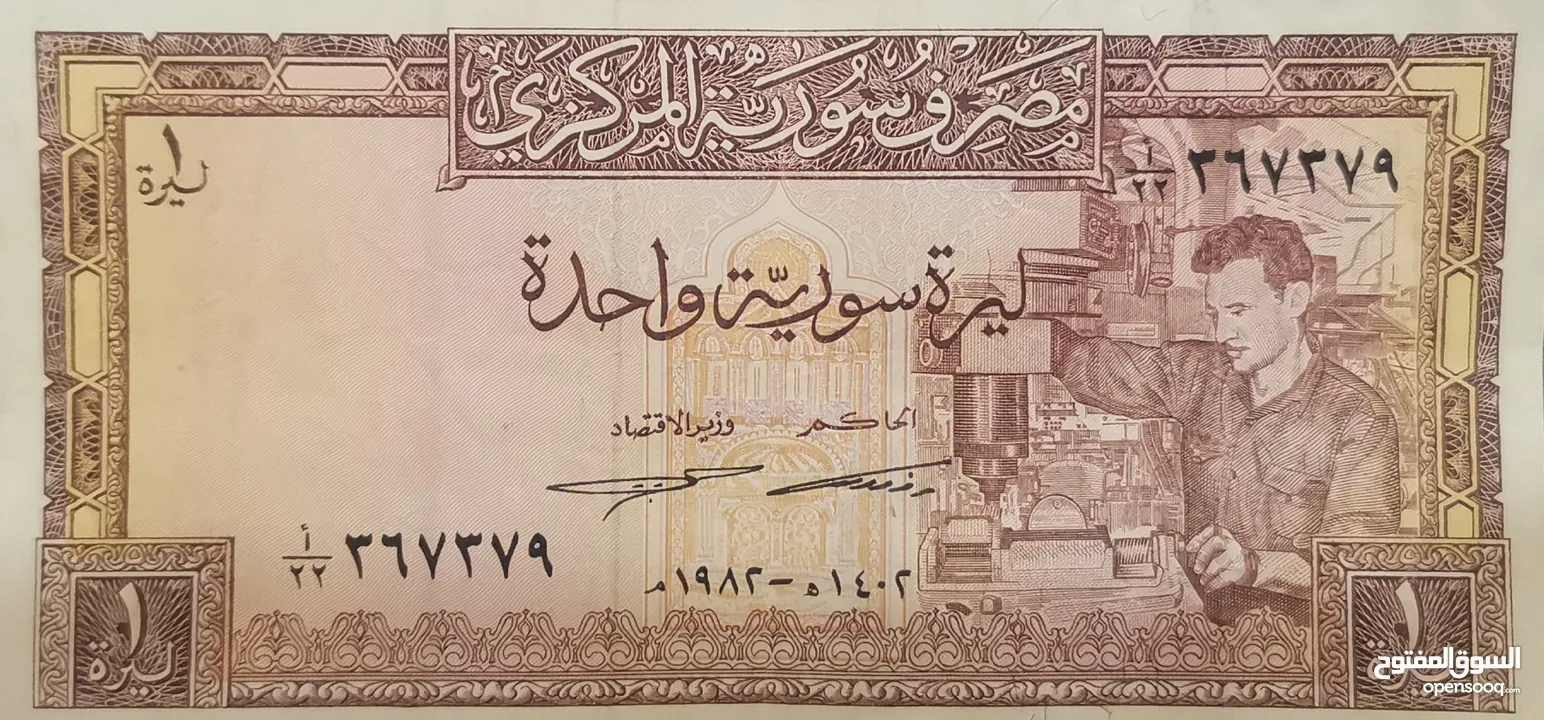 مصرف سورية المركزي
١ ليرة
أ/٢٢ ٣٦٧٣٧٩
ليرة سورية واحدة
الحاكم وزير الاقتصاد
أ/٢٢ ٣٦٧٣٧٩
١٤٠٢ ه - ١٩٨٢ م
١ ليرة
١
السوق المفتوح
opensooq.com